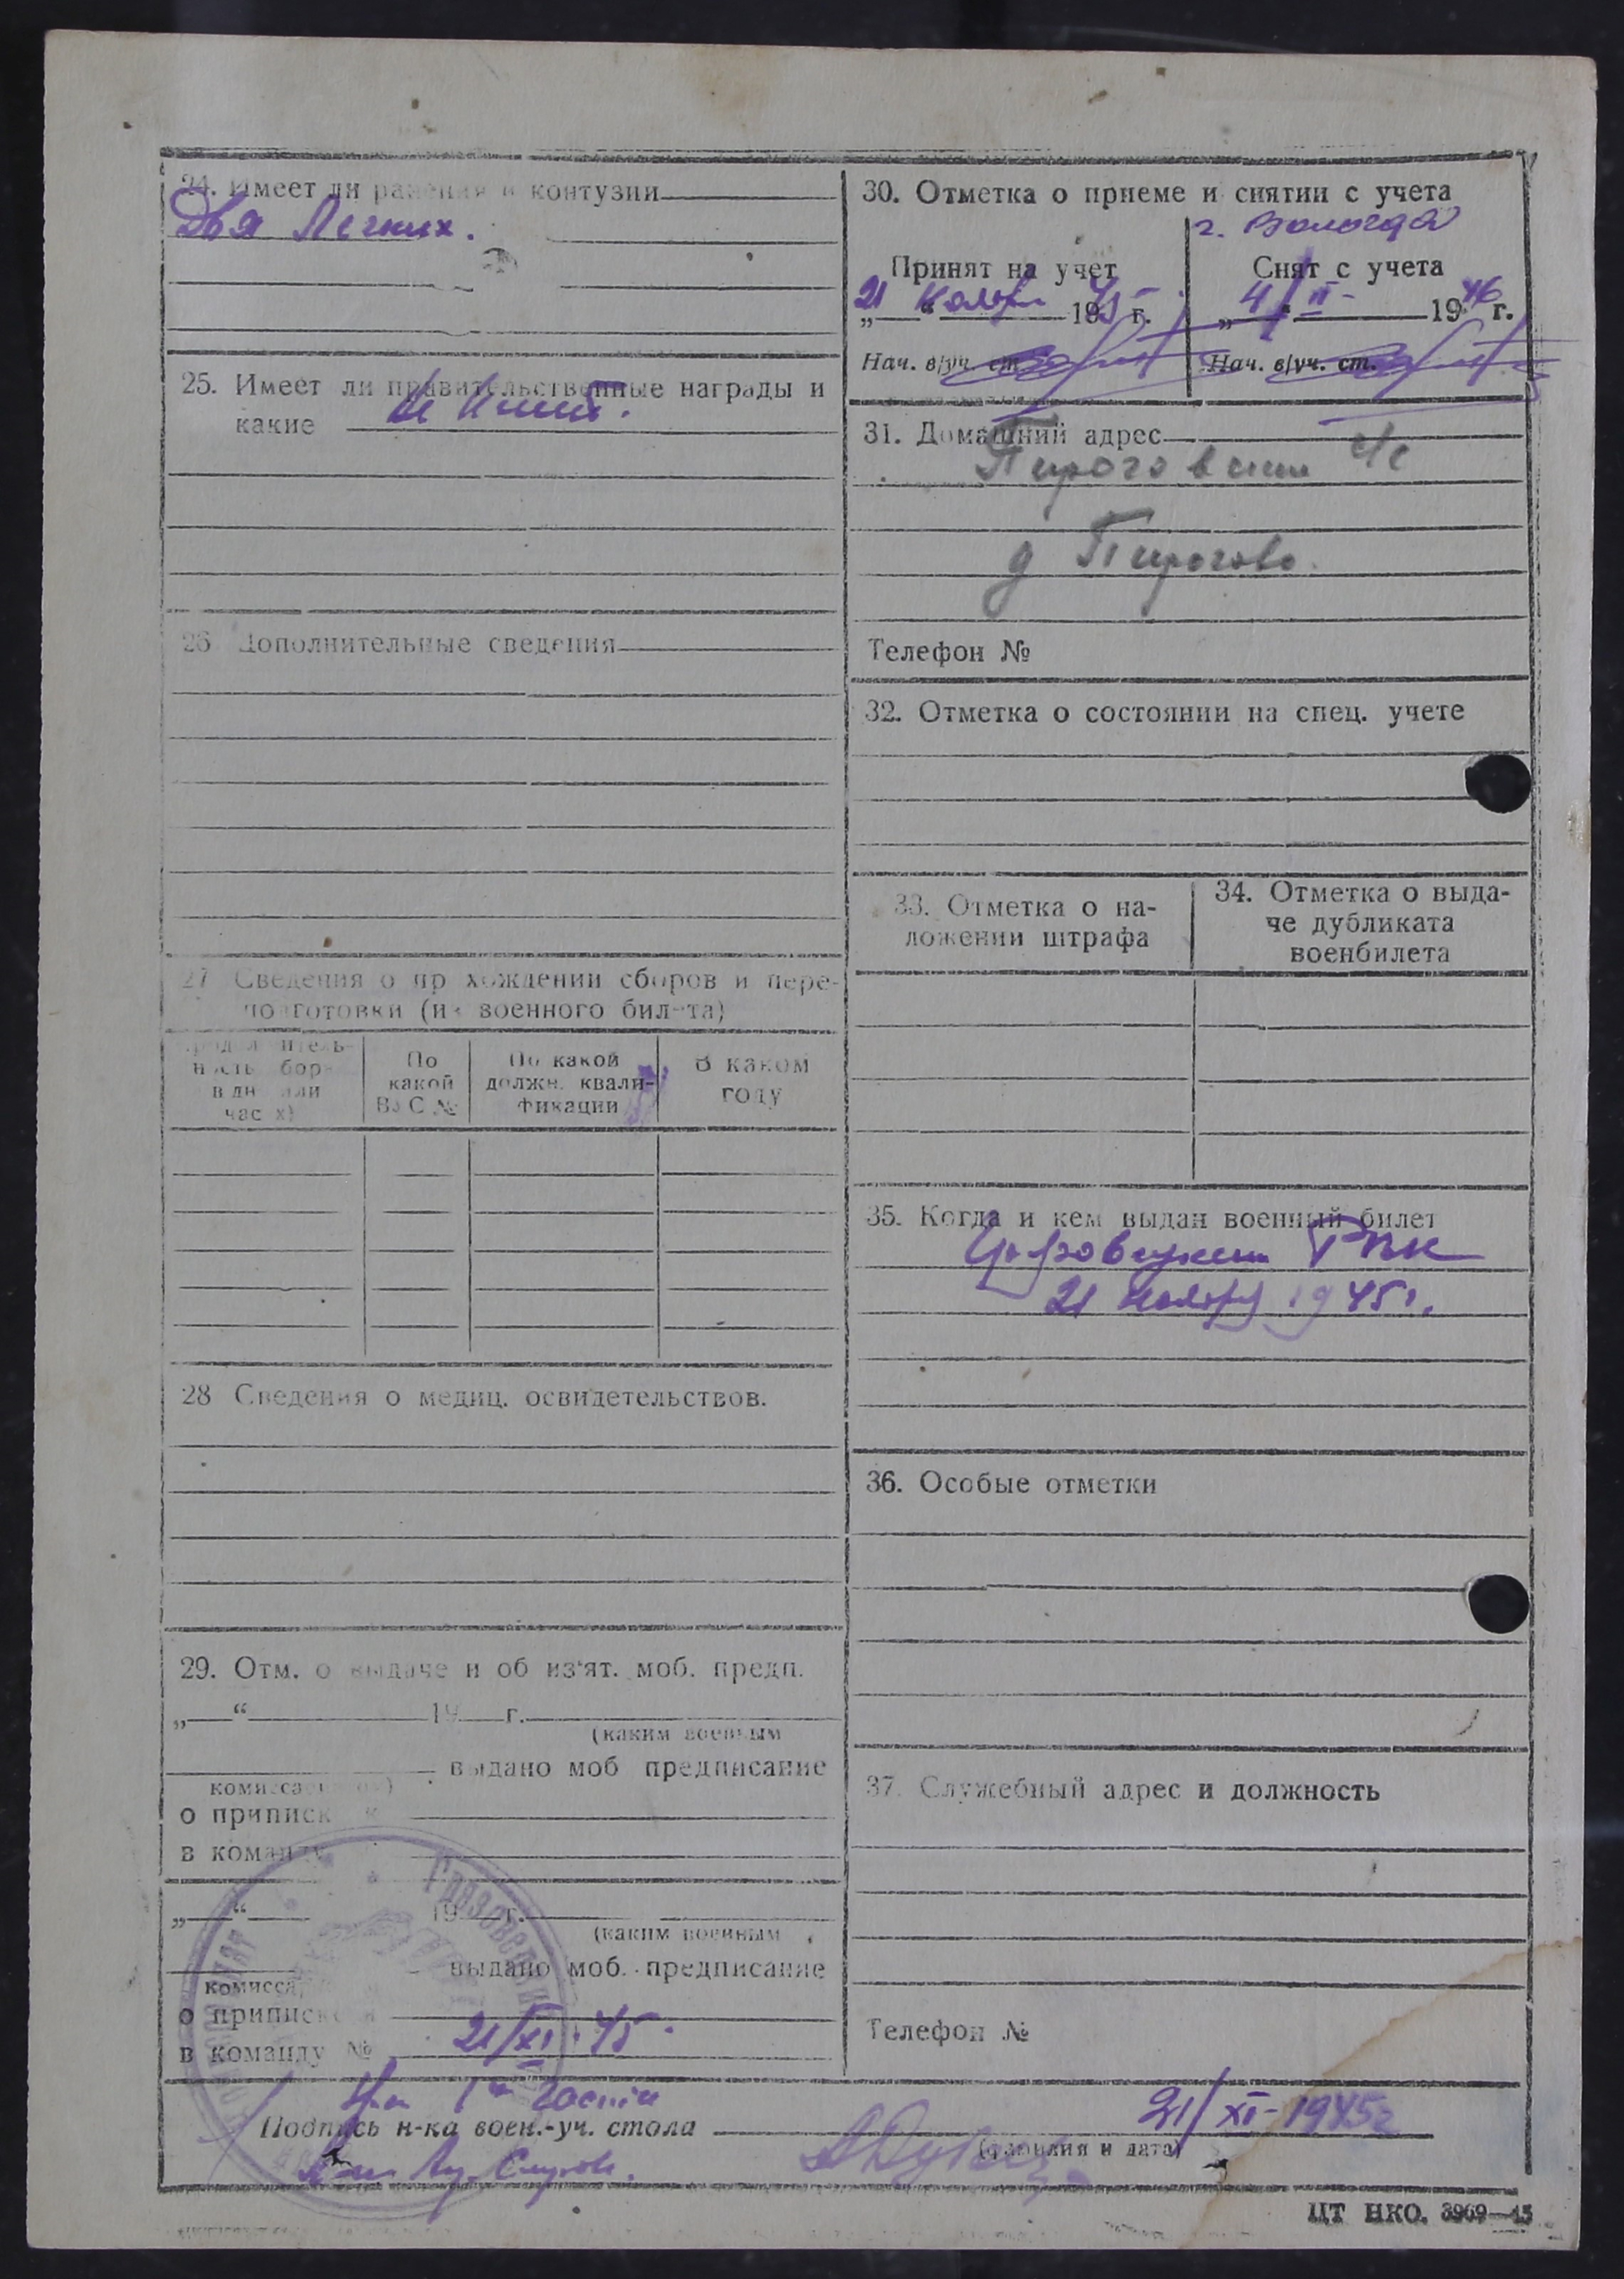 24. Имеет ли ранения и контузии
Два Легких.
25. Имеет ли правительственные награды и
какие
26. Дополнительные сведения
27 Сведения о прохождении сборов и пере-
подготовки (из военного билета)
По
какой
ВУС №
По какой
должн. квали-
фикации
В каком
году
28 Сведения о медиц. освидетельствов.
29. Отм. о выдаче и об из'ят. моб. предп.
„ “ 19 г.
(каким военным
выдано моб предписание
комиссариатом)
о приписке к
в команду
„ “ 19 г.
(каким военным
выдано моб. предписание
о приписке
в команду № 21/XI 45.
30. Отметка о приеме и снятии с учета
г. Вологда
Принят на учет
21 ноября 1945 г.
Нач. в/уч. ст.
Снят с учета
„4/II 1946 г.
Нач. в/уч. ст.
31. Домашний адрес
Пироговский с/с
д Пирогово.
Телефон №
32. Отметка о состоянии на спец. учете
33. Отметка о на-
ложении штрафа
34. Отметка о выда-
че дубликата
военбилета
35. Когда и кем выдан военный билет
РВК
21 ноября 1945 г.
36. Особые отметки
37. Служебный адрес и должность
Телефон №
Нач 1й части
21/XI-1945г
Подпись н-ка воен.-уч. стола
(фамилия и дата)
ЦТ НКО. 3969—45